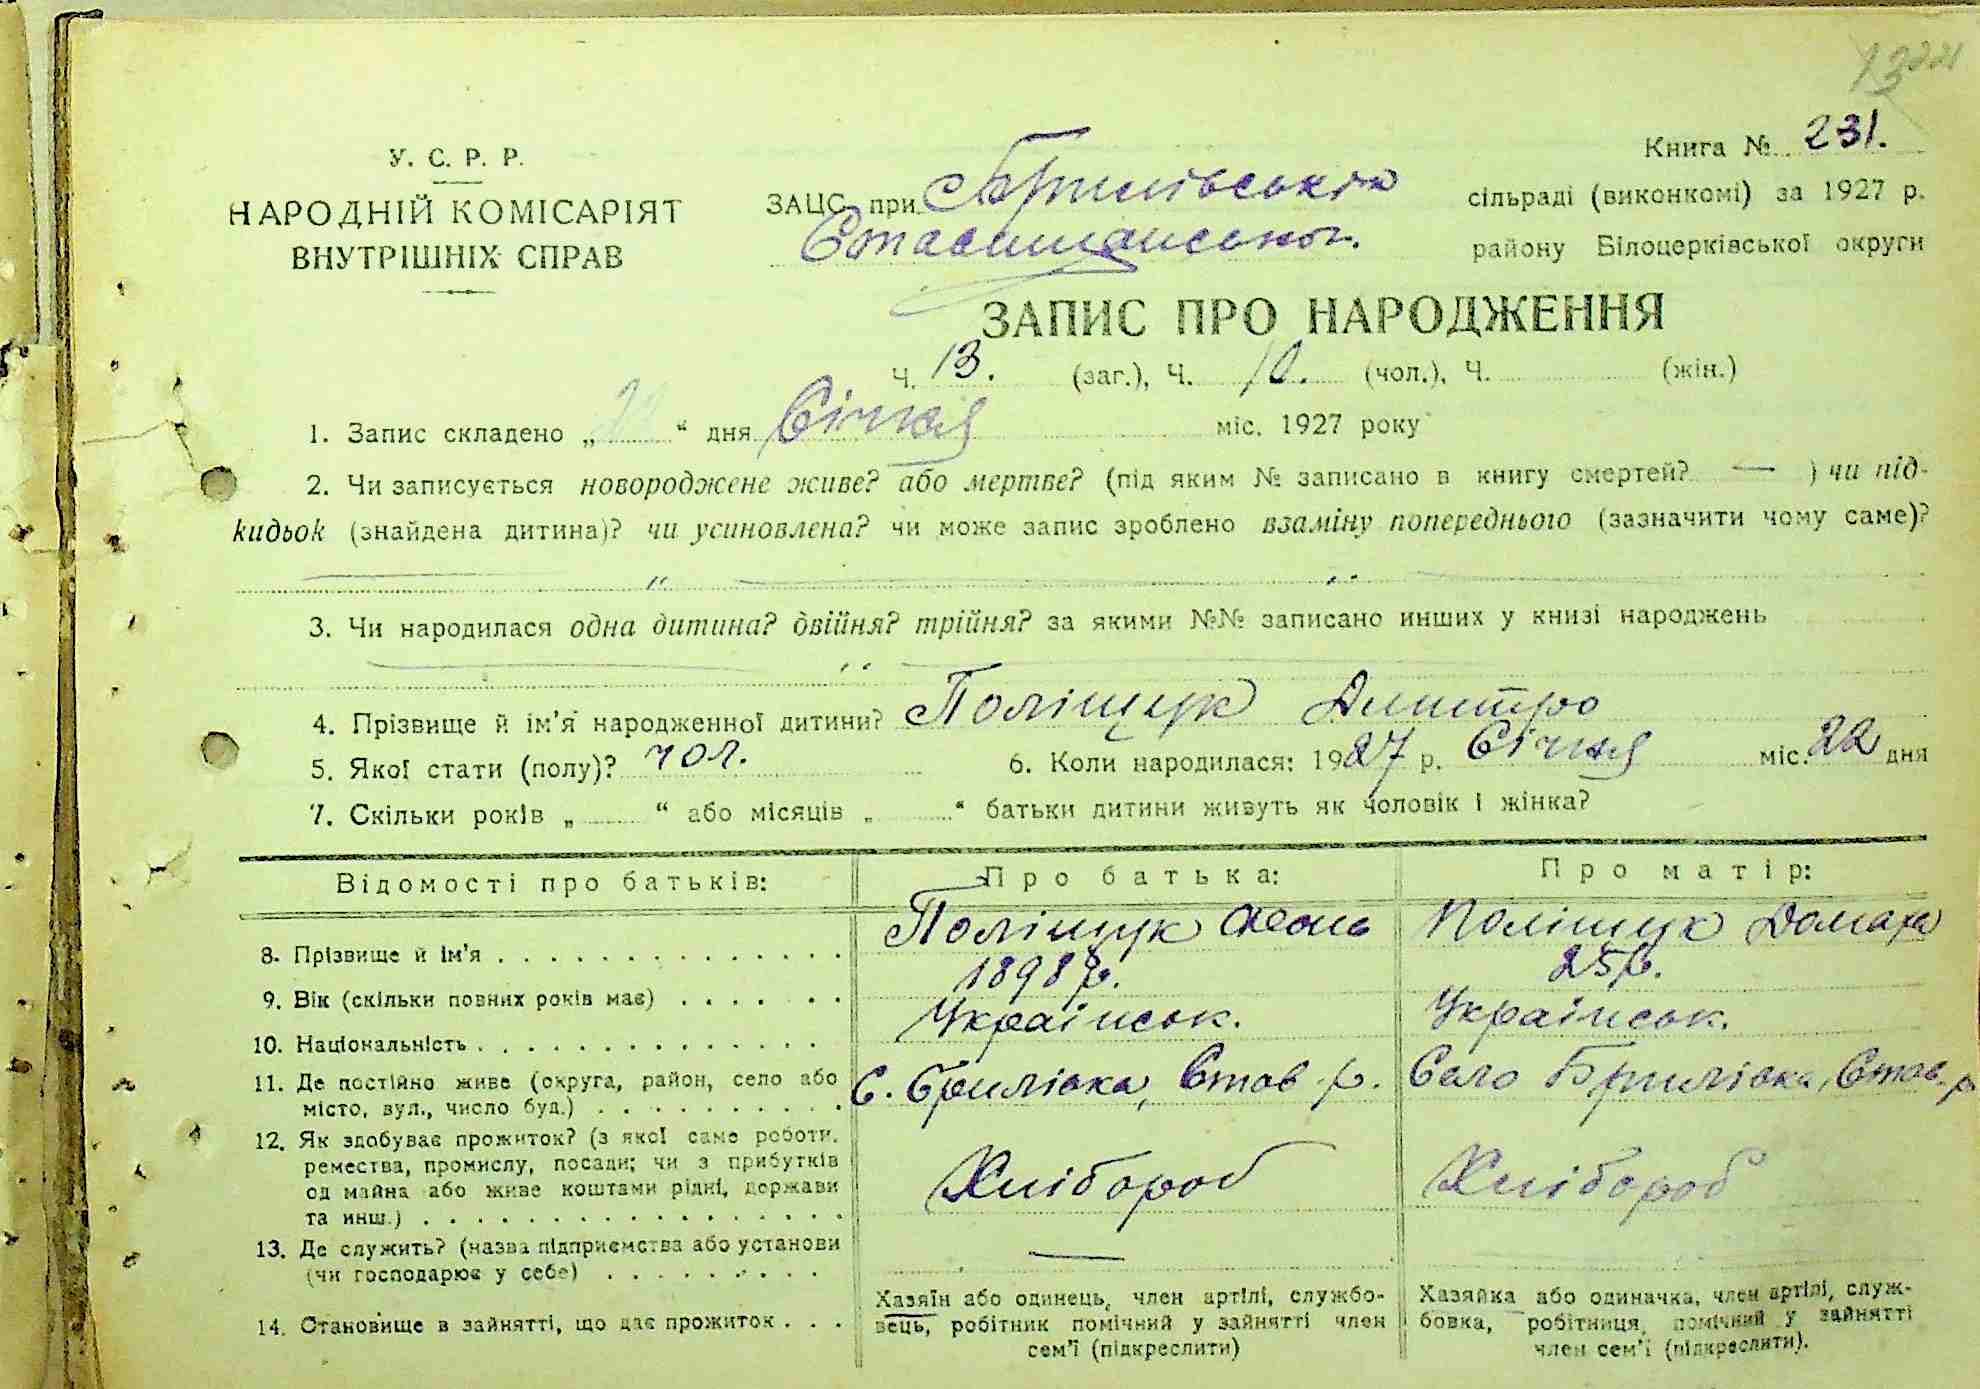 13
У. С. Р. Р.
НАРОДНІЙ КОМІСАРІЯТ
ВНУТРІШНІХ СПРАВ
Книга № 231.
ЗАЦС при Брилівській сільраді (виконкомі) за 1927 р.
району Білоцерківської округи
ЗАПИС ПРО НАРОДЖЕННЯ
Ч. 13. (заг.), Ч. 10. (чол.), Ч. (жін.)
1. Запис складено „ 22 “ дня Січня міс. 1927 року
2. Чи записується новороджене живе? або мертве? (під яким № записано в книгу смертей? — ) чи під-
кидьок (знайдена дитина)? чи усиновлена? чи може запис зроблено взаміну попереднього (зазначити чому саме)?
3. Чи народилася одна дитина? двійня? трійня? за якими №№ записано инших у книзі народжень
4. Прізвище й ім’я народженної дитини? Поліщук Дмитро
5. Якої стати (полу)? чол. 6. Коли народилася: 1927 р. Січня міс. 22 дня
7. Скільки років „ “ або місяців „ “ батьки дитини живуть як чоловік і жінка?
Відомості про батьків: Про батька: Про матір:
8. Прізвище й ім’я Поліщук Поліщук Домаха
9. Вік (скільки повних років має) 1898 р. 25 р.
10. Національність Українськ. Українськ.
11. Де постійно живе (округа, район, село або
місто, вул., число буд.) С. Брилівка, Став. р. Село Брилівка, Став. р.
12. Як здобуває прожиток? (з якої саме роботи,
ремества, промислу, посади; чи з прибутків
од майна або живе коштами рідні, держави
та инш.) Хлібороб Хлібороб
13. Де служить? (назва підприємства або установи
(чи господарює у себе) —
14. Становище в зайнятті, що дає прожиток
Хазяїн або одинець, член артілі, службо-
вець, робітник помічний у зайнятті член
сем’ї (підкреслити)
Хазяйка або одиначка, член артілі, служ-
бовка, робітниця, помічний у зайнятті
член сем’ї (підкреслити).